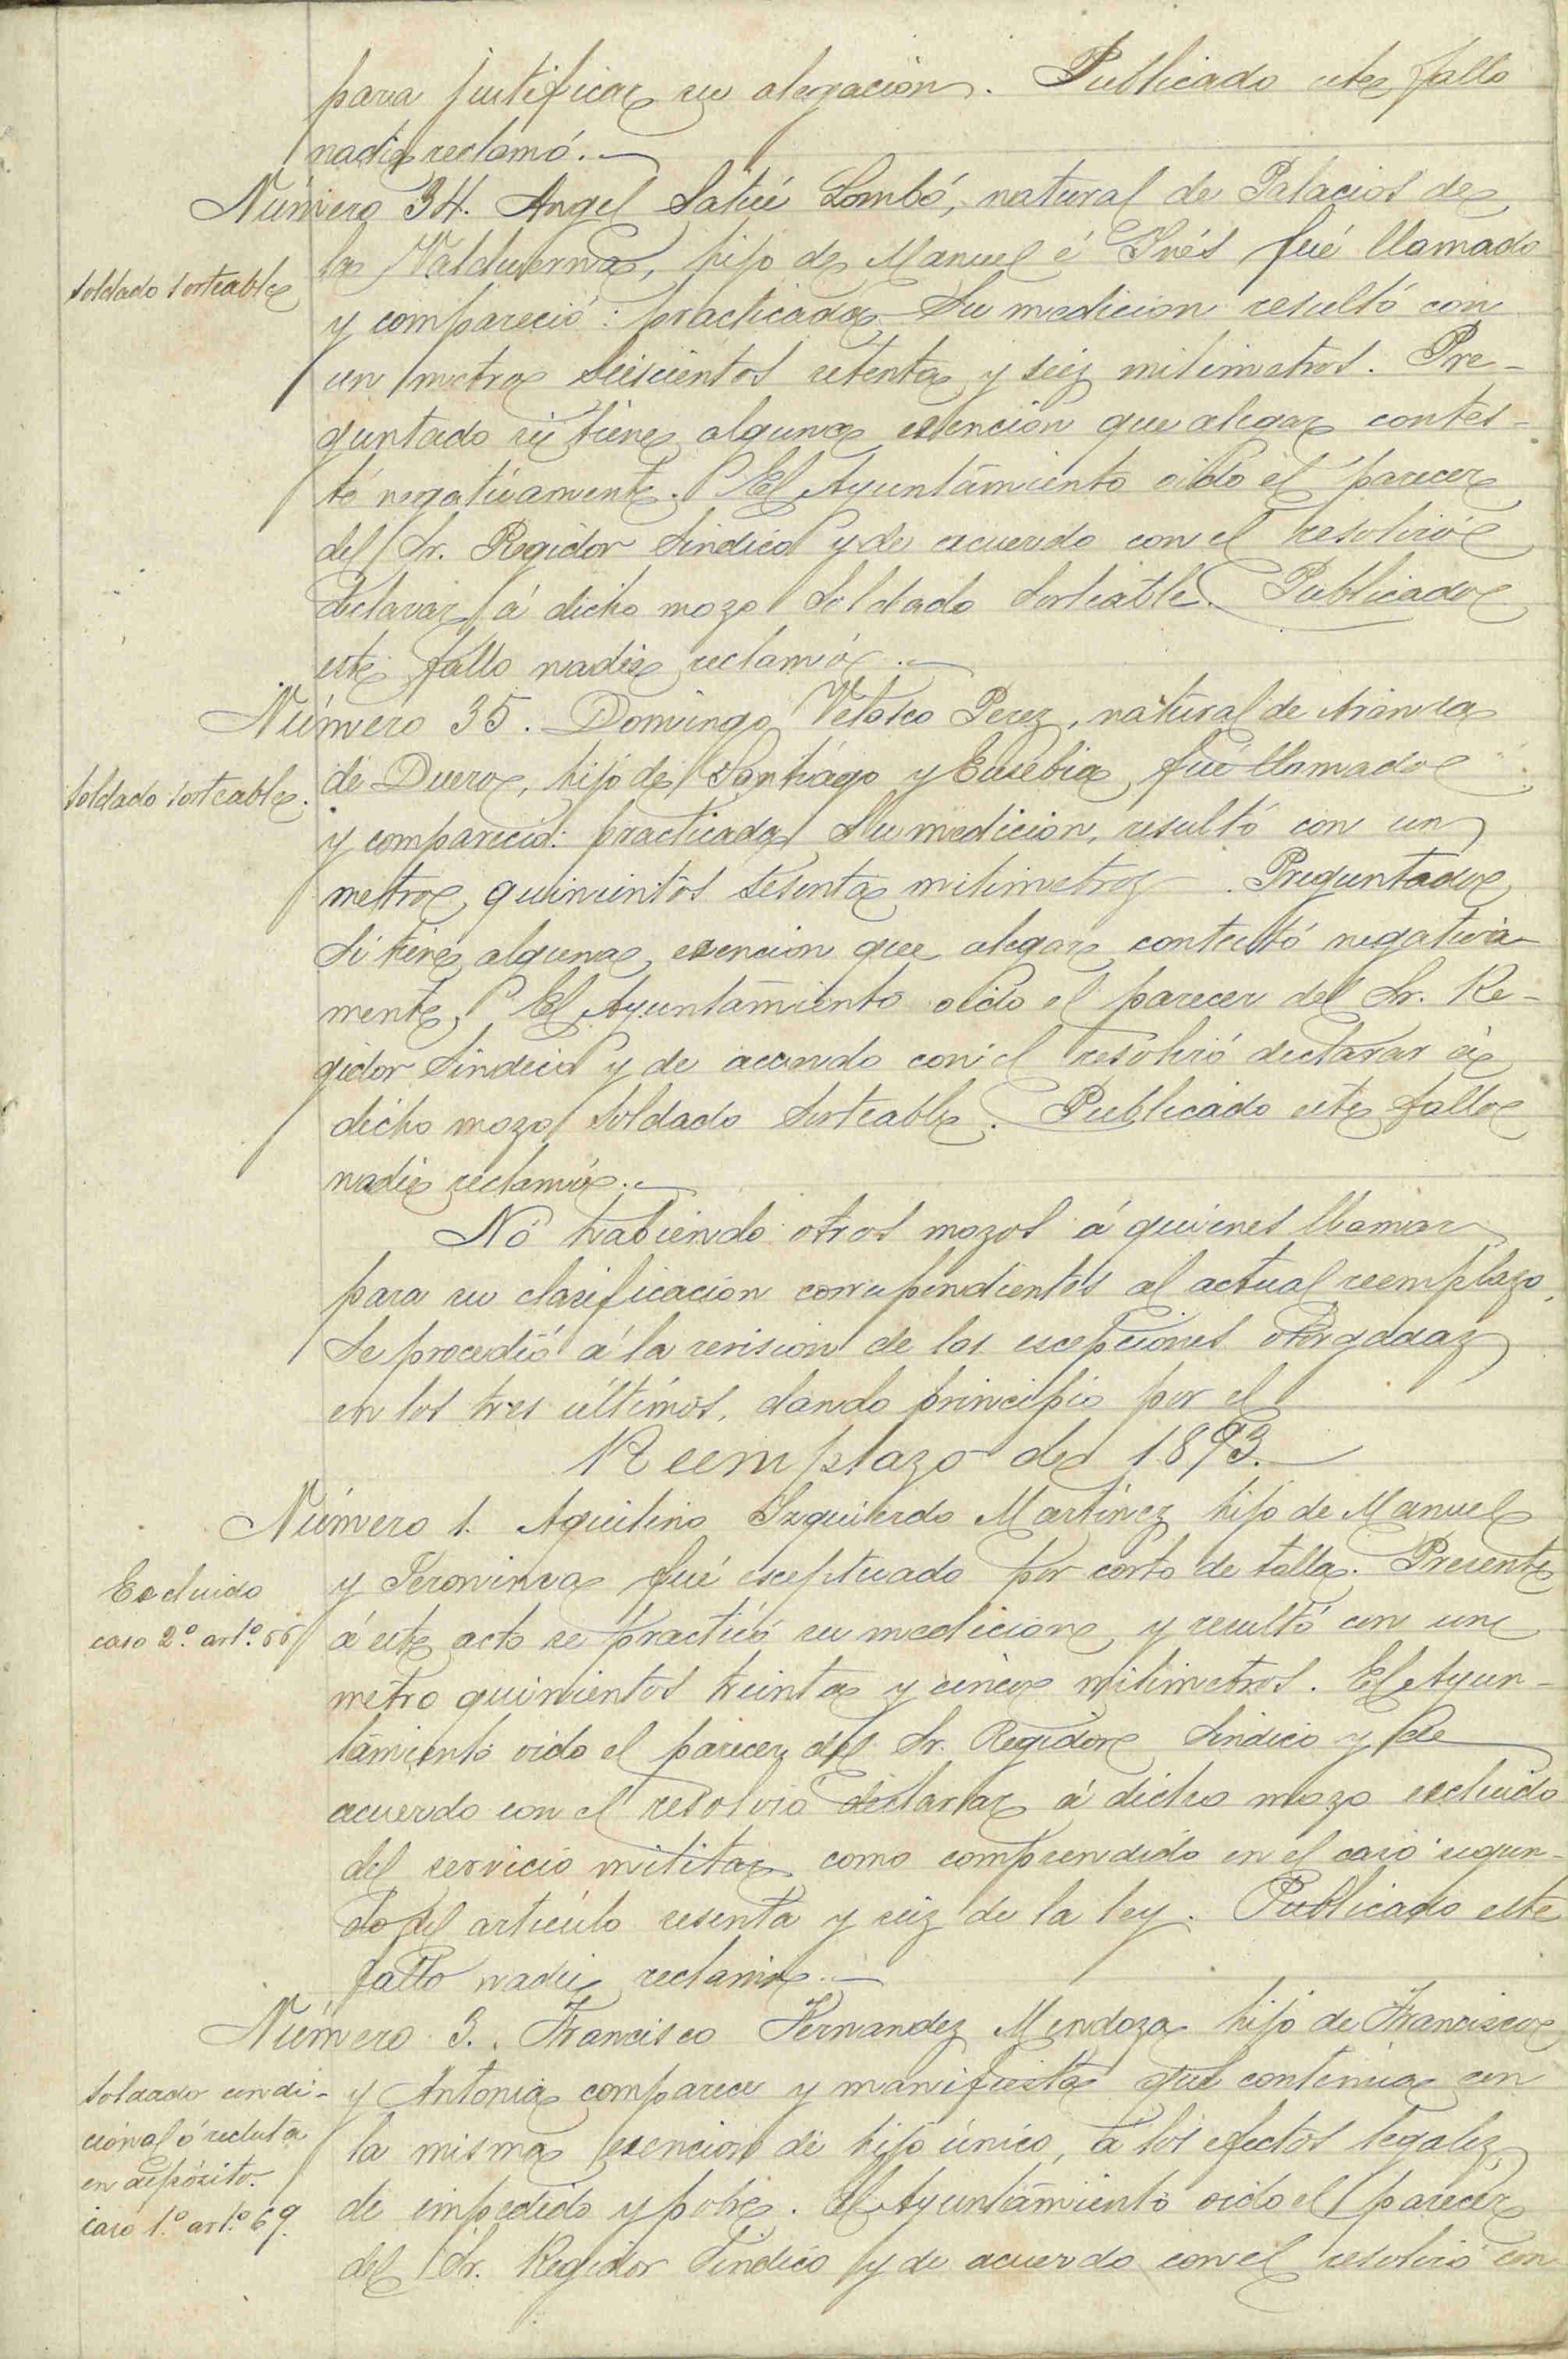 para justificar su alegacion. Publicado este fallo
nadie reclamó.
Número 34. Angel Satué Lombó, natural de Palacios de
la Valduerna, hijo de Manuel é Inés fué llamado
soldado sorteable
y compareció: practicada su medicion resultó con
un metro seiscientos setenta y seis milimetros. Pre-
guntado si tiene alguna esencion que alegar contes-
tó negativamente. El Ayuntamiento oido el parecer
del Sr. Regidor Sindico y de acuerdo con el resolvió
declarar á dicho mozo Soldado Sorteable. Publicado
este fallo nadie reclamó.
Número 35. Domingo Velasco Perez, natural de Aranda
de Duero, hijo de Santiago y Eusebia fué llamado
soldado sorteable.
y compareció: practicada su medicion, resultó con un
metro quinientos sesenta milimetros. Preguntado
si tiene alguna esencion que alegar contestó negativa-
mente. El Ayuntamiento oido el parecer del Sr. Re-
gidor Sindico y de acuerdo con el resolvió declarar á
dicho mozo Soldado Sorteable. Publicado este fallo
nadie reclamó.
No habiendo otros mozos á quienes llamar
para su clasificacion correspondientes al actual reemplazo,
se procedió á la revision de las escepciones otorgadas
en los tres últimos, dando principio por el
Reemplazo de 1893.
Número 1. Aquilino Izquierdo Martinez hijo de Manuel
y Geronima fué esceptuado por corto de talla. Presente
Escluido
caso 2º artº 66
á este acto se practicó su medicion y resultó con un
metro quinientos treinta y cinco milimetros. El Ayun-
tamiento oido el parecer del Sr. Regidor Sindico y de
acuerdo con el resolvió declarar á dicho mozo escluido
del servicio militar como comprendido en el caso segun-
do del artículo sesenta y seis de la ley. Publicado este
fallo nadie reclamó.
Número 3. Francisco Hernandez Mendoza hijo de Francisco
y Antonia comparece y manifiesta que continúa con
soldado condi-
cional ó recluta
en depósito.
caso 1º artº 69.
la misma esencion de hijo único, á los efectos legales,
de impedido y pobre. El Ayuntamiento oido el parecer
del Sr. Regidor Sindico y de acuerdo con el resolvió con